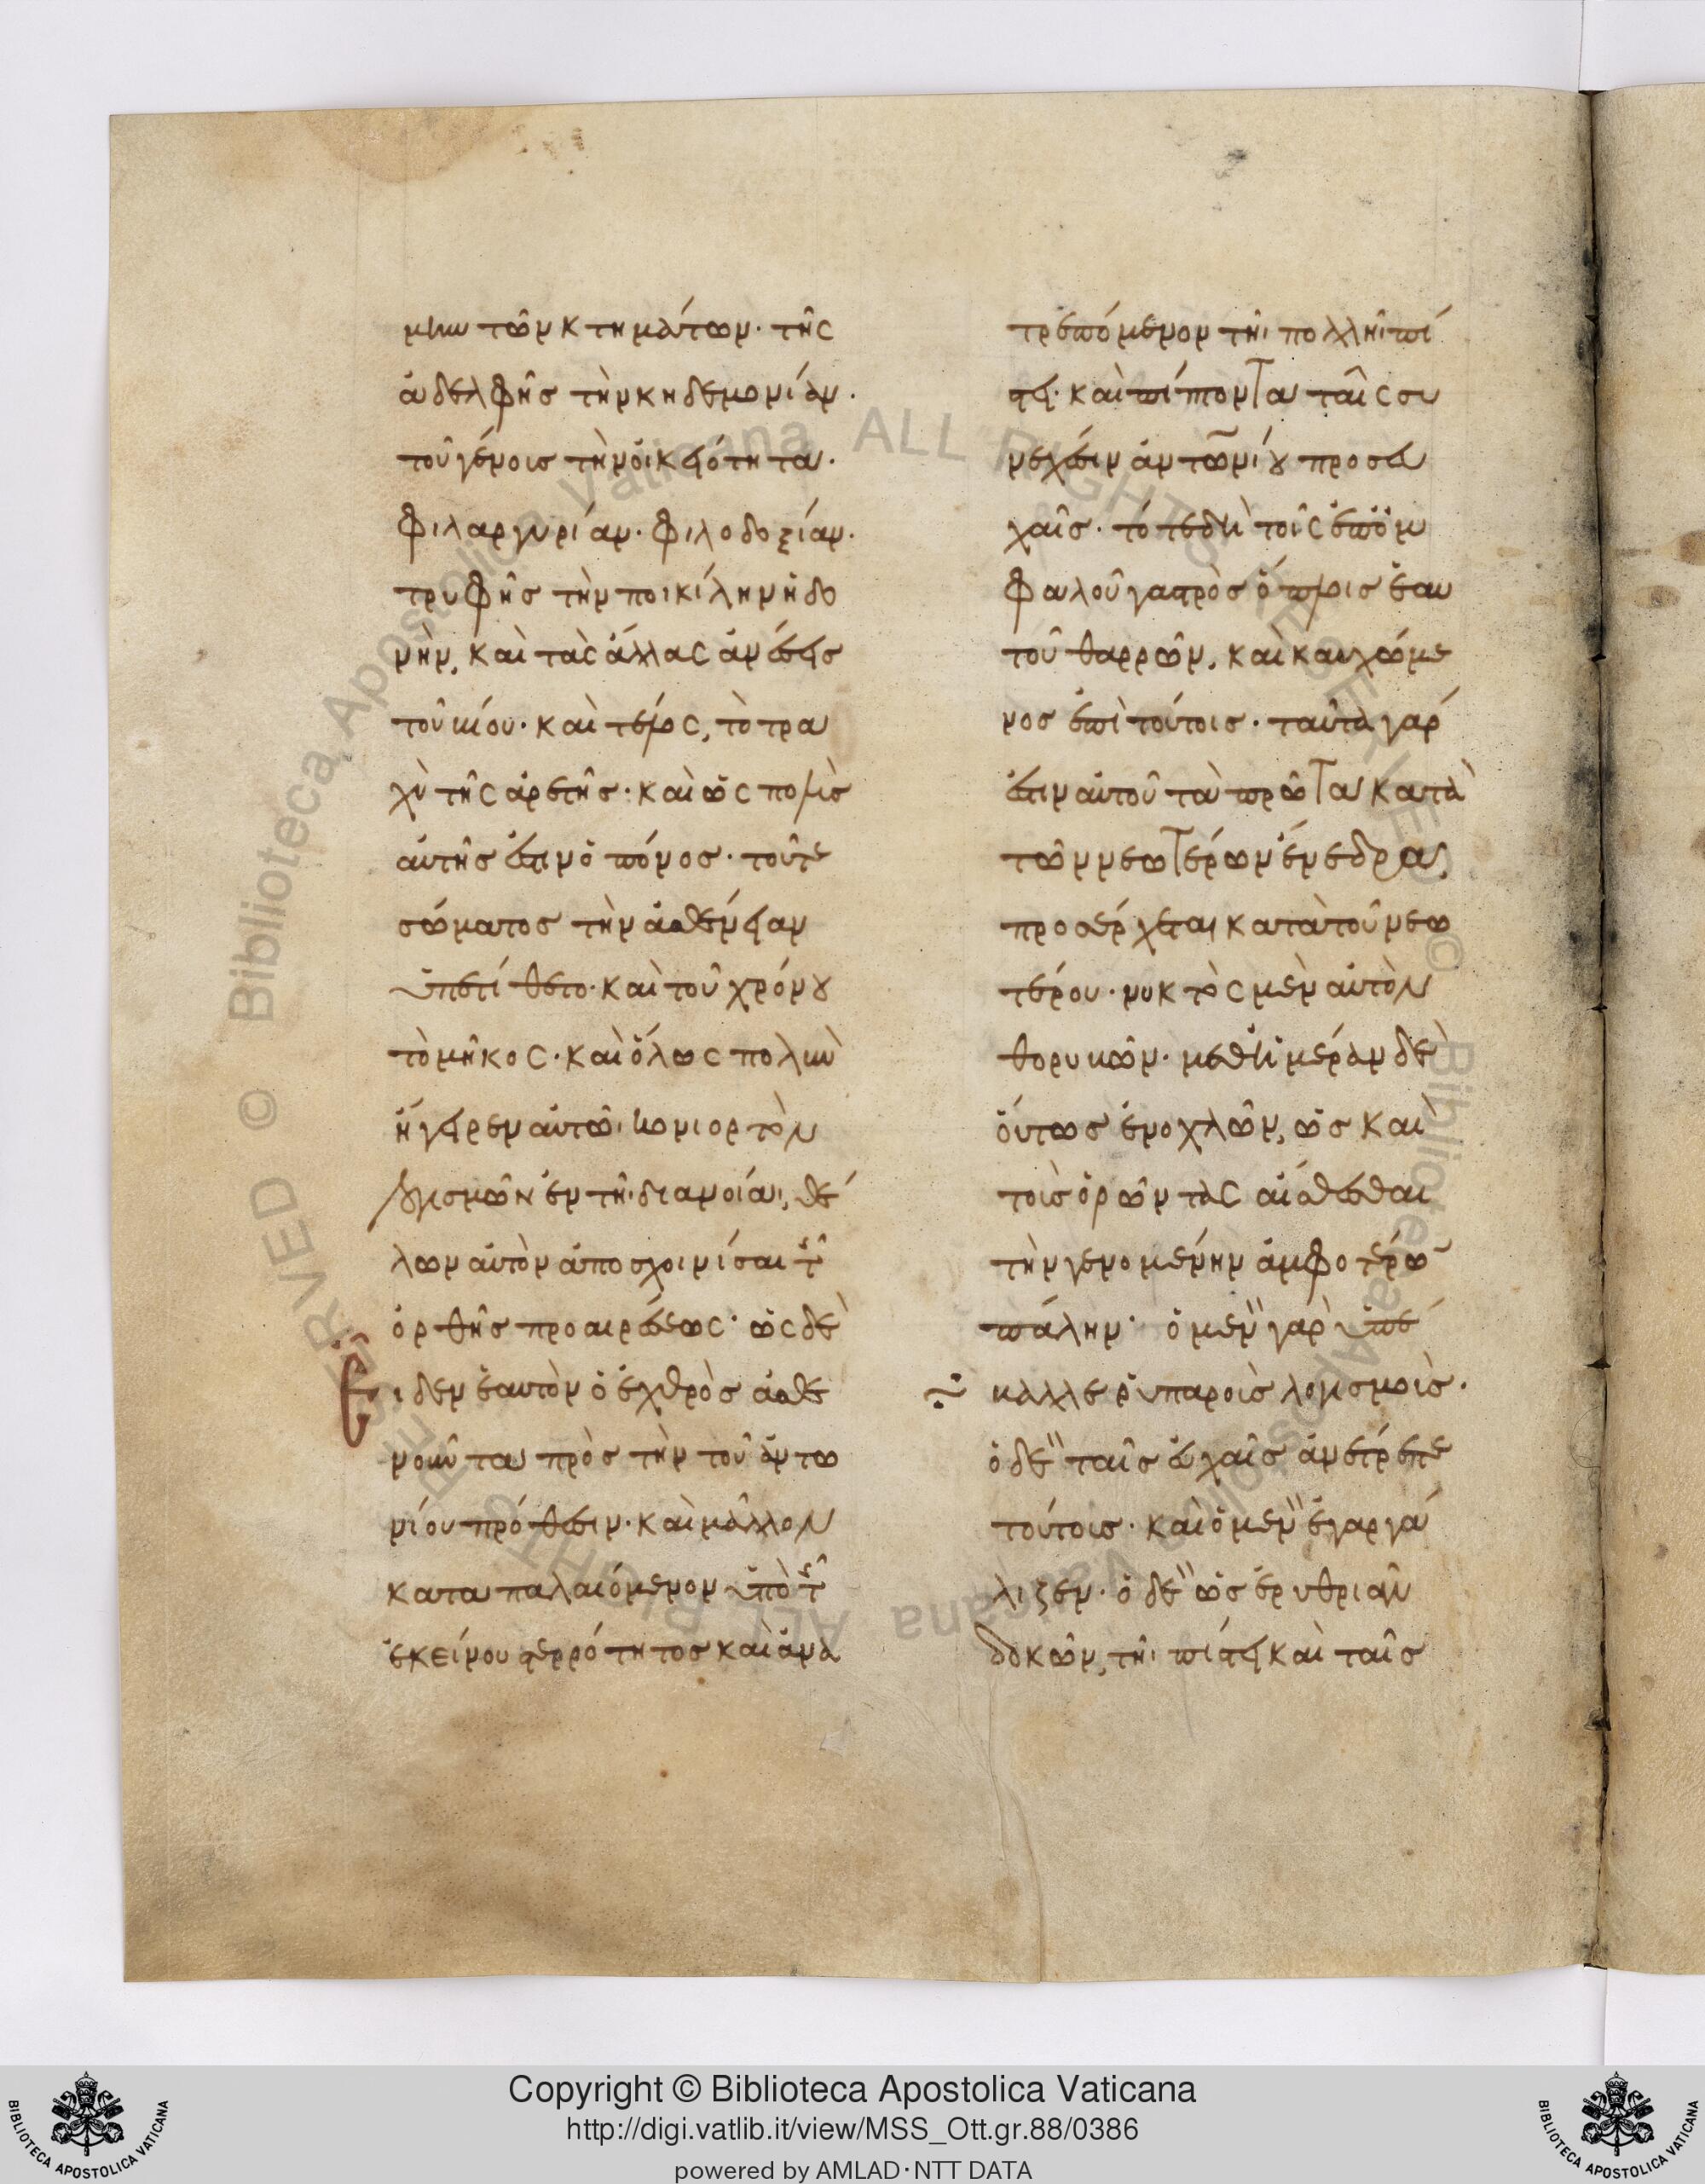 μην τῶν κτημάτων· τῆς
ἀδελφῆς τὴν κηδεμονίαν·
τοῦ γένοις τὴν οἰκειότητα·
φιλαργυρίαν· φιλοδοξίαν·
τρυφῆς τὴν ποικίλην ἡδο
νὴν, καὶ τὰς ἄλλας ἀνέσεις
τοῦ βίου· καὶ τέλος, τὸ τρα
χὺ τῆς ἀρετῆς· καὶ ὡς πολὺς
αὐτῆς ἐστιν ὁ πόνος· τοῦ τε
σώματος τὴν ἀσθένειαν
ὑπετίθετο· καὶ τοῦ χρόνου
τὸ μῆκος· καὶ ὅλως πολὺν
ἤγειρεν αὐτῶ, κονιορτὸν
λογισμῶν ἐν τῆι διανοίαι, θέ
λων αὐτὸν ἀποσχοινίσαι τῆς
ὀρθῆς προαιρέσεως· ὡς δὲ
εἶδεν ἑαυτὸν ὁ ἐχθρὸς ἀσθε
νοῦντα πρὸς τὴν τοῦ ἀντω
νίου πρόθεσιν· καὶ μᾶλλον
καταπαλαιόμενον ὑπὸ τῆς
ἐκείνου στερρότητος καὶ ἀνα
τρεπόμενον τῆι πολλῆι πί
στει· καὶ πίπτοντα ταῖς συ
νεχέσιν ἀντωνίου προσευ
χαῖς· τότε δὴ τοῖς ἐπ' ὀμ
φαλοῦ γαστρὸς ὅπλοις ἑαυ
τοῦ θαρρῶν, καὶ καυχώμε
νος ἐπὶ τούτοις· ταῦτα γάρ
ἐστιν αὐτοῦ τὰ πρῶτα κατὰ
τῶν νεωτέρων ἔνεδρα,
προσέρχεται κατὰ τοῦ νεω
τέρου· νυκτὸς μὲν αὐτὸν
θορυβῶν· μεθ' ἡμέραν δὲ
οὕτως ἐνοχλῶν, ὡς καὶ
τοὺς ὁρῶντας αἰσθέσθαι
τὴν γενομένην ἀμφοτέρων
πάλην· ὁ μὲν γὰρ ὑπέ
βαλλε ῥυπαροὺς λογισμοὺς·
ὁ δὲ ταῖς εὐχαῖς ἀνέτρεπε
τούτοις· καὶ ὁ μὲν ἐγαργά
λιζεν· ὁ δὲ ὡς ἐρυθριᾶν
δοκῶν, τῆι πίστει καὶ ταῖς
Copyright © Biblioteca Apostolica Vaticana
http://digi.vatlib.it/view/MSS_Ott.gr.88/0386
powered by AMLAD·NTT DATA